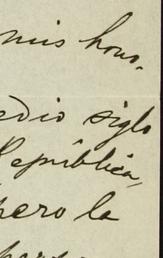 mis hono-
edio siglo
República,
pero la